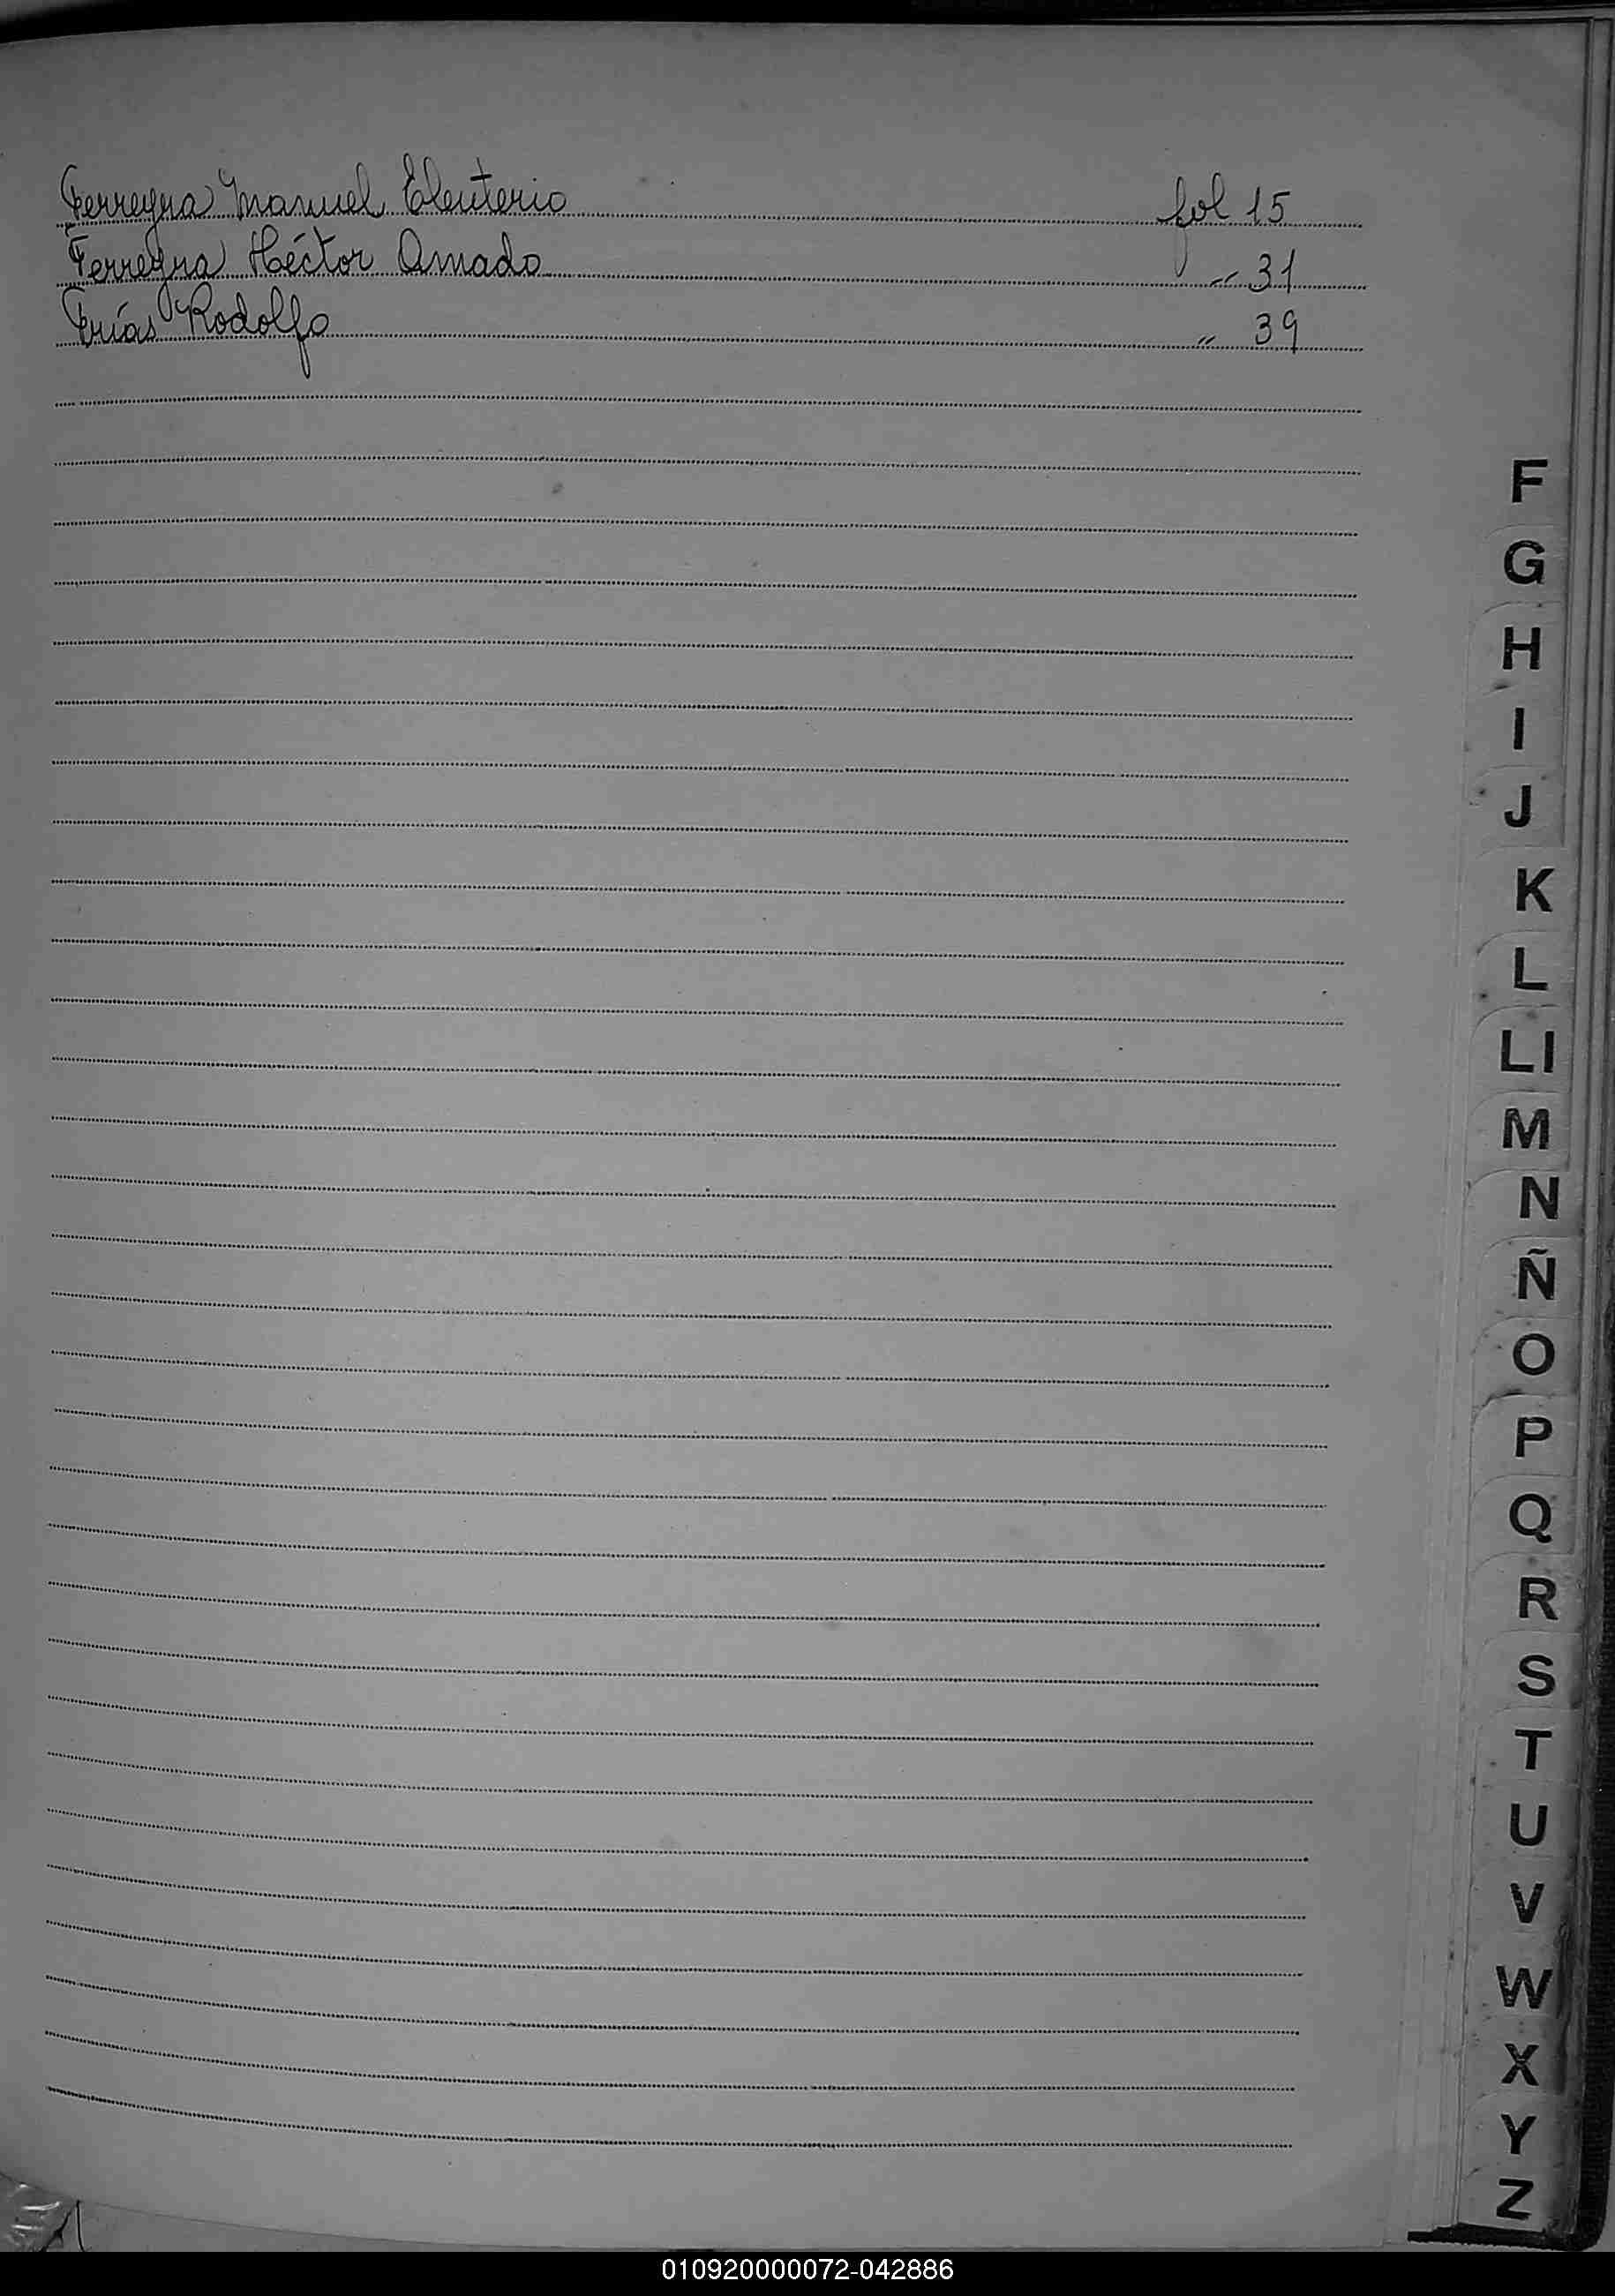 Ferreyra Manuel Eleuterio fol 15
Ferreyra Héctor Amado " 31
Frías Rodolfo " 39
F
G
H
I
J
K
L
Ll
M
N
Ñ
O
P
Q
R
S
T
U
V
W
X
Y
Z
010920000072-042886